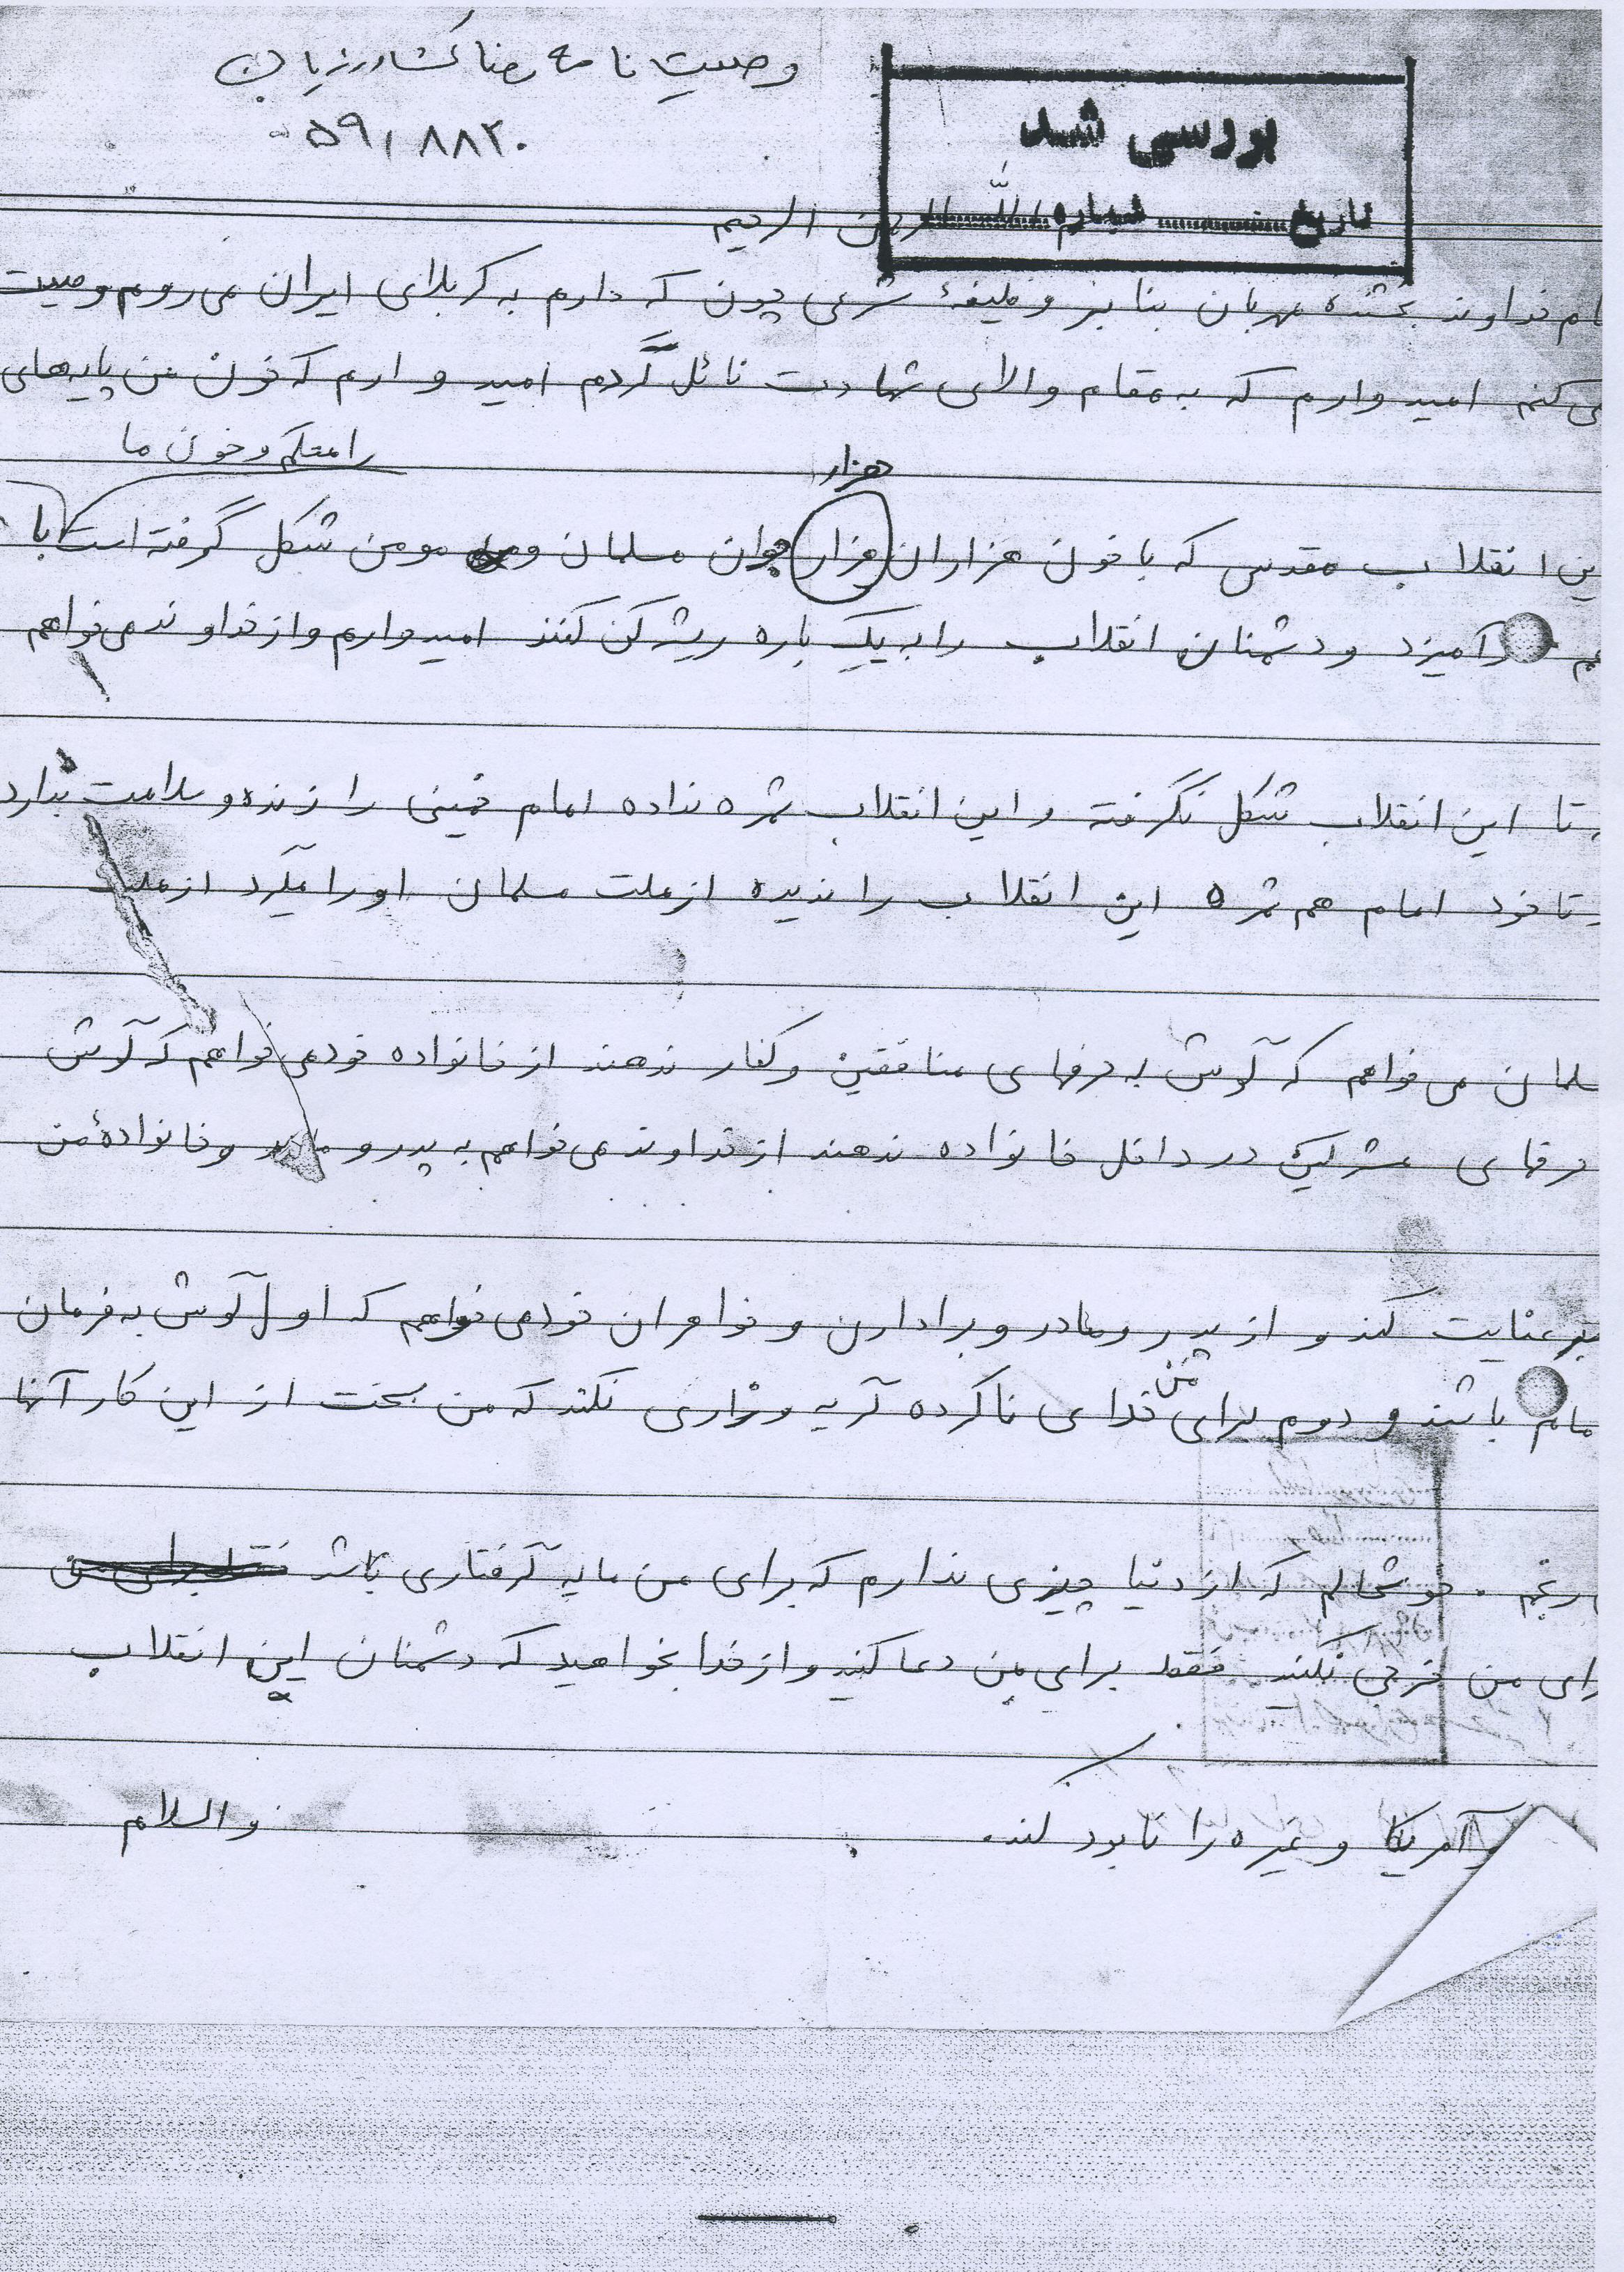 وصیت نامه رضا کشاورزیان
۵۹/۸۸۲۰
بررسی شد
تاریخ شماره
الله الرحمن الرحیم
ام خداوند بخشنده مهربان بنا بر وظیفهٔ شرعی چون که دارم به کربلای ایران می روم وصیت
ی کنم امید وارم که به مقام والای شهادت نائل گردم امید وارم که خون من پایه های
را محکم و خون ما
هزار
ین انقلاب مقدس که با خون هزاران هزار جوان مسلمان و مومن شکل گرفته است با
هم آمیزد و دشمنان انقلاب را به یک باره ریشه کن کنند امیدوارم و از خداوند می خواهم
تا این انقلاب شکل نگرفته و این انقلاب ثمره نداده امام خمینی را زنده و سلامت بدارد
تا خود امام هم ثمره این انقلاب را ندیده از ملت مسلمان او را نگیرد از ملت
سلمان می خواهم که گوش به حرفهای منافقین و کفار ندهند از خانواده خود می خواهم که گوش
حرفهای مشرکین در داخل خانواده ندهند از خداوند می خواهم به پدر و مادر و خانوادهٔ من
عنایت کند و از پدر و مادر و برادارن و خواهران خود می خواهم که اول گوش به فرمان
من
مام باشند و دوم برای خدای ناکرده گریه وزاری نکنند که من سخت از این کار آنها
رنجم . خوشحالم که از دنیا چیزی ندارم که برای من مایه گرفتاری باشد
رای من خرجی نکنید فقط برای من دعا کنید و از خدا بخواهید که دشمنان این انقلاب
آمریکا و غیره را نابود کند.
والسلام